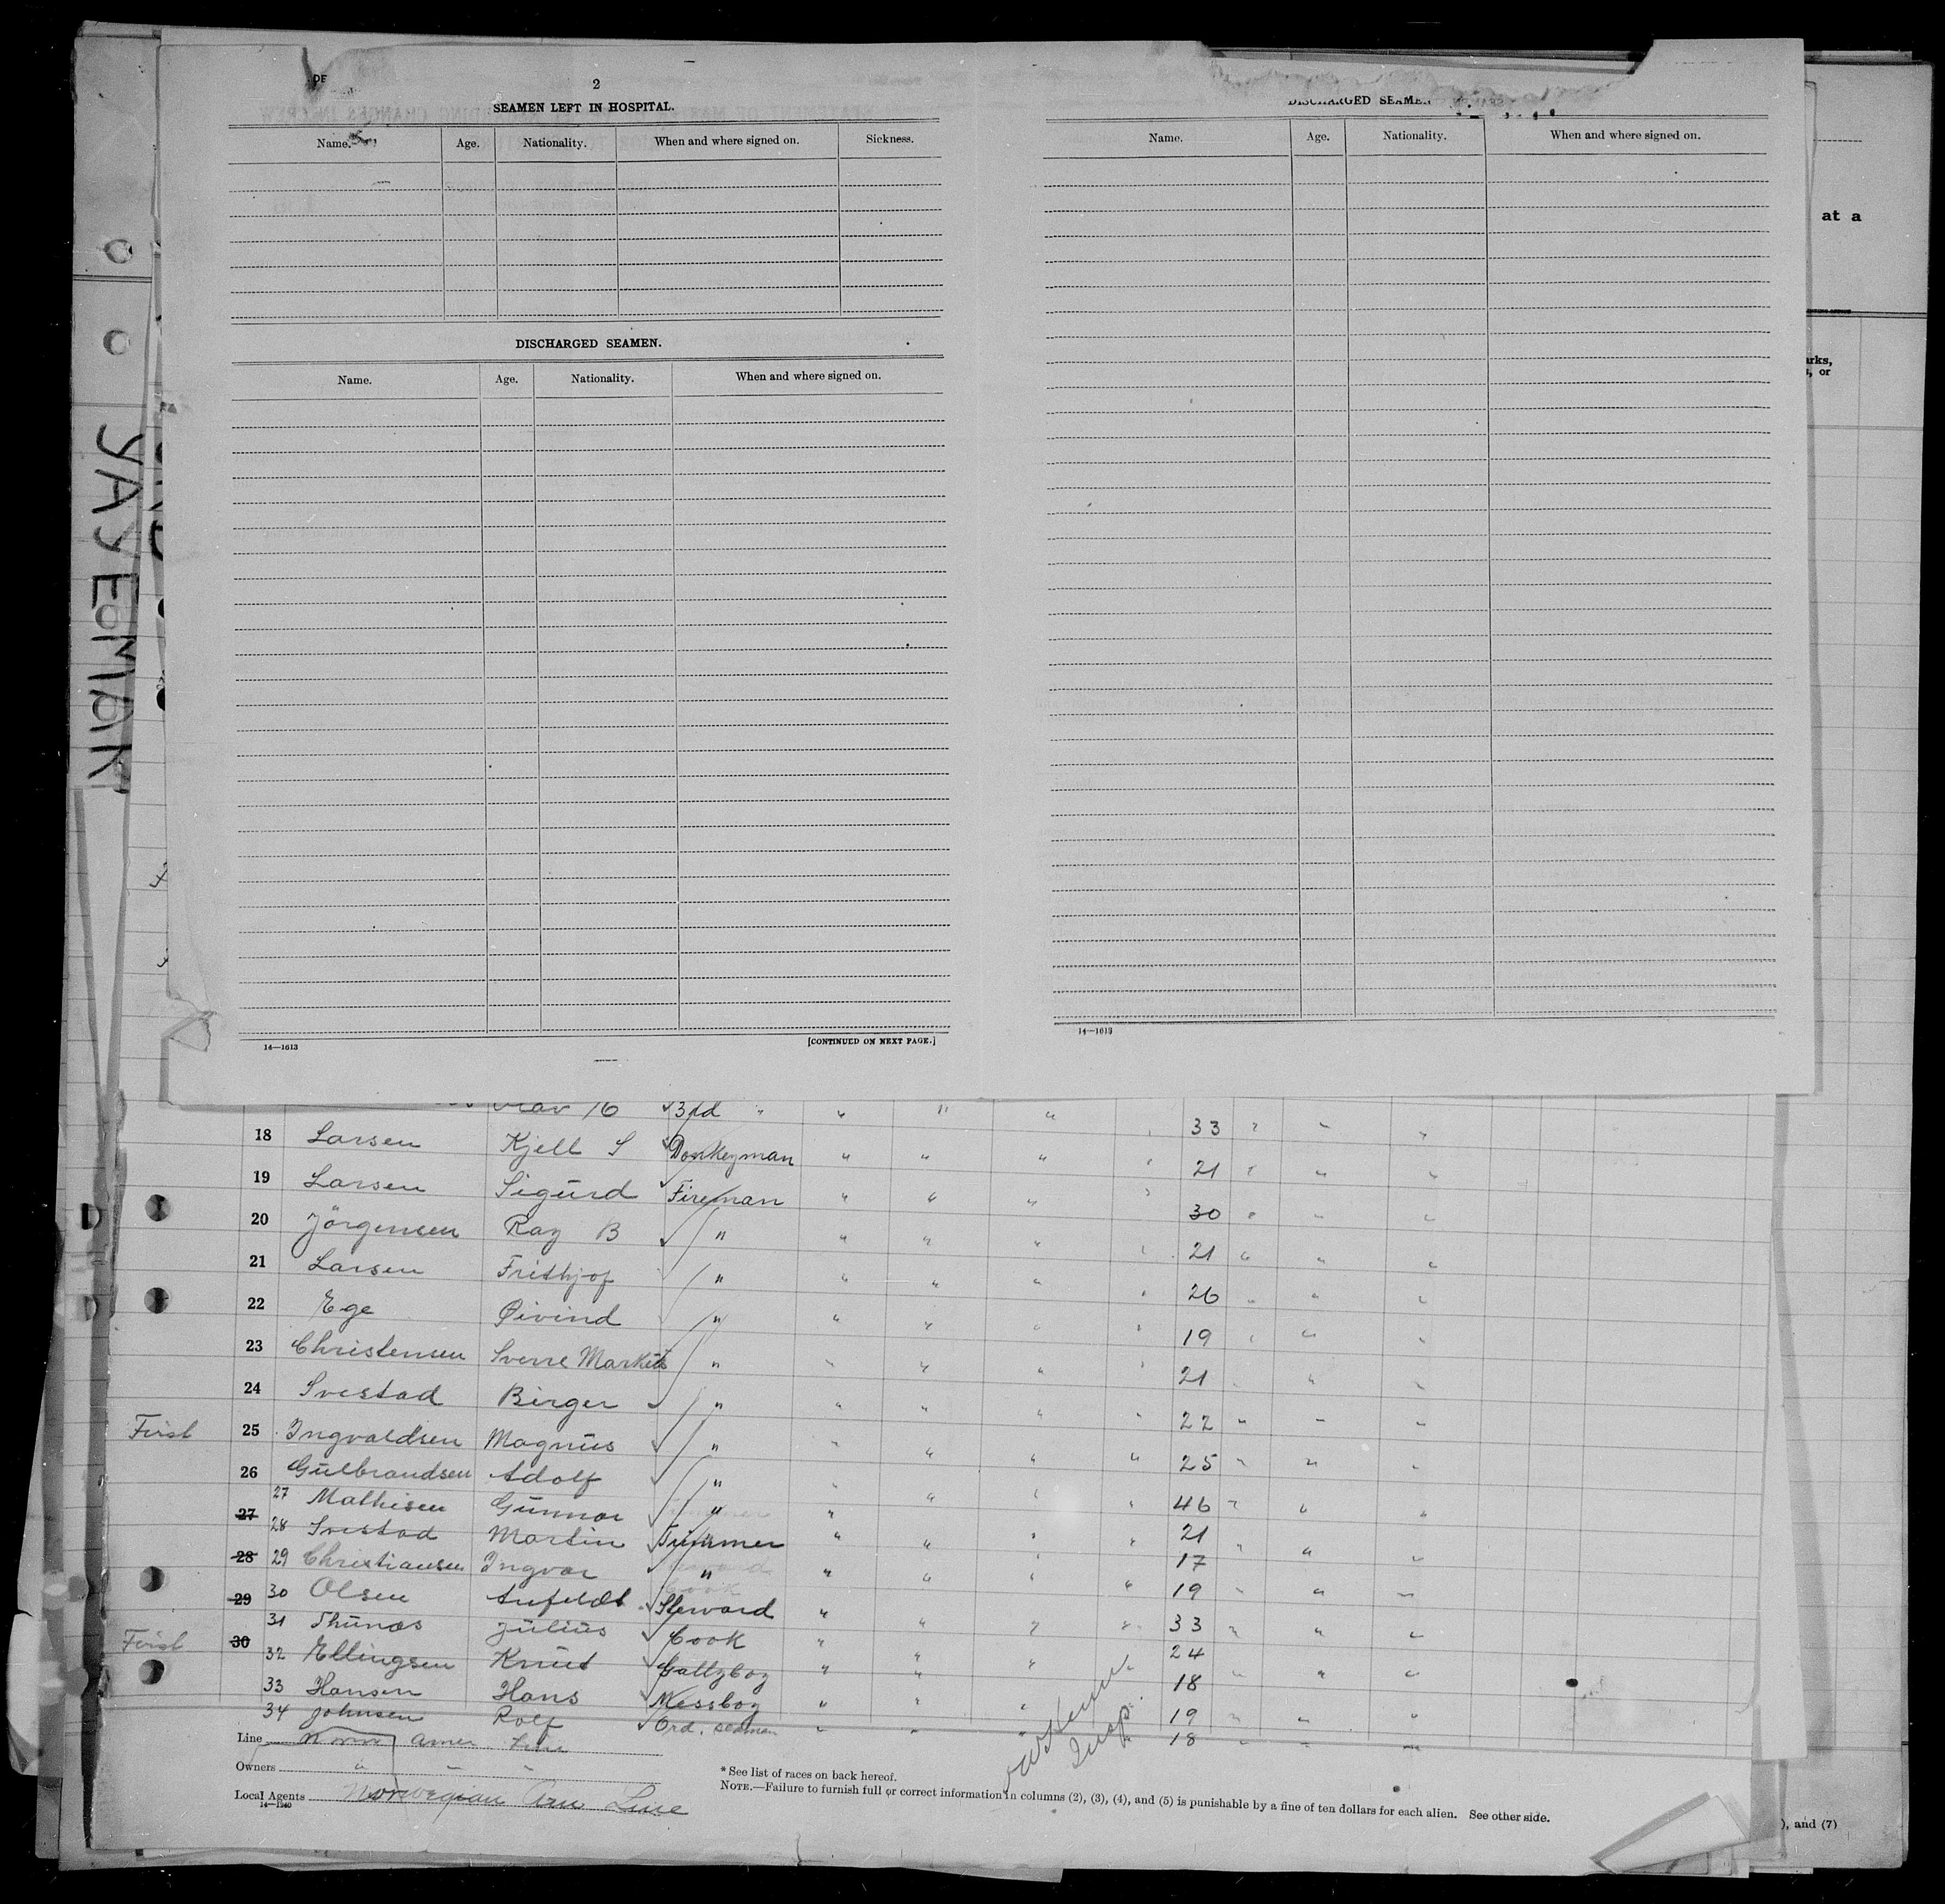 2
SEAMEN LEFT IN HOSPITAL.
Name. Age. Nationality. When and where signed on. Sickness.
DISCHARGED SEAMEN.
Name. Age. Nationality. When and where signed on.
14—1613 [CONTINUED ON NEXT PAGE.]
DISCHARGED SEAMEN
Name. Age. Nationality. When and where signed on.
14—1613
at a
arks,
, or
3rd " " " " 33 " " "
18 Larsen Kjell S Donkeyman " " " " 21 " " "
19 Larsen Sigurd Fireman " " " " 30 " " "
20 Jörgensen Ray B " " " " " 21 " " "
21 Larsen Frithjof " " " " " 26 " " "
22 Ege Øivind " " " " " 19 " " "
23 Christensen Sverre " " " " " 21 " " "
24 Svestad Birger " " " " " 22 " " "
First 25 Ingvaldsen Magnus " " " " " 25 " " "
26 Gulbrandsen Adolf " " " " " 46 " " "
27 27 Mathisen Gunnar " " " " " 21
28 28 Svestad Martin Trimmer " " " " 17 " " "
29 29 Christiansen Ingvar " " " " " 19 " " "
30 Olsen Anfeldt Steward " " " " 33 " " "
First 30 31 Thunas Julius Cook " " " " 24
32 Ellingsen Knut Gallyboy " " " " 18 " " "
33 Hansen Hans Messboy " " " 19 " " "
34 Johnsen Rolf Ord. seaman " " " 18 " " "
Line Norw Amer Line
Owners " " "
Local Agents Norwegian Am Line
14—1240
Insp.
* See list of races on back hereof.
NOTE.—Failure to furnish full or correct information in columns (2), (3), (4), and (5) is punishable by a fine of ten dollars for each alien. See other side.
), and (7)